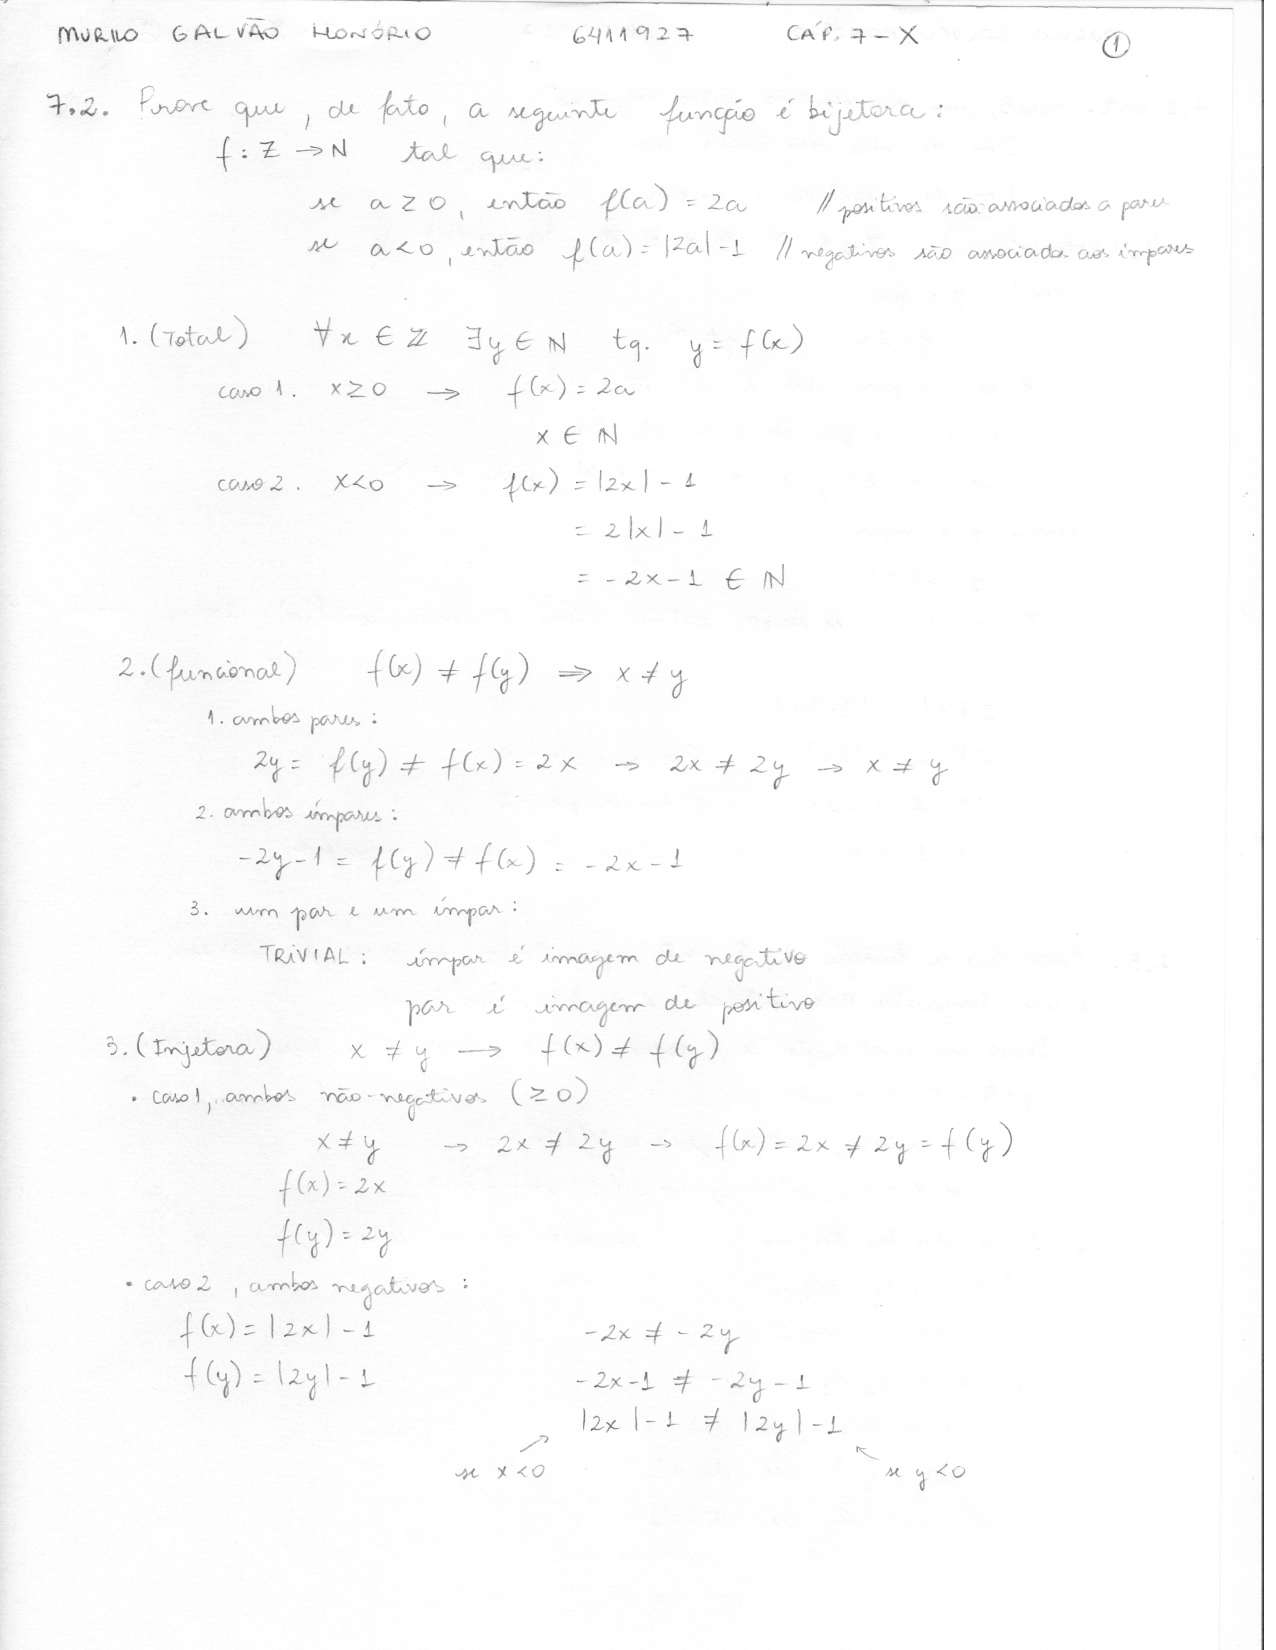 MURILO GALVÃO HONÓRIO 6411927 CÁP. 7 - X 1
7.2. Prove que, de fato, a seguinte função é bijetora:
f: Z → N tal que:
se a ≥ 0, então f(a) = 2a // positivos são associados a pares
se a < 0, então f(a) = |2a| - 1 // negativos são associados aos ímpares
1. (Total) ∀x ∈ Z ∃y ∈ N tq. y = f(x)
caso 1. x ≥ 0 → f(x) = 2a
x ∈ N
caso 2. x < 0 → f(x) = |2x| - 1
= 2|x| - 1
= -2x - 1 ∈ N
2. (funcional) f(x) ≠ f(y) ⇒ x ≠ y
1. ambos pares:
2y = f(y) ≠ f(x) = 2x → 2x ≠ 2y → x ≠ y
2. ambos ímpares:
-2y - 1 = f(y) ≠ f(x) = -2x - 1
3. um par e um ímpar:
TRIVIAL: ímpar é imagem de negativo
par é imagem de positivo
3. (Injetora) x ≠ y → f(x) ≠ f(y)
• caso 1, ambos não-negativos (≥ 0)
x ≠ y → 2x ≠ 2y → f(x) = 2x ≠ 2y = f(y)
f(x) = 2x
f(y) = 2y
• caso 2, ambos negativos:
f(x) = |2x| - 1 -2x ≠ -2y
f(y) = |2y| - 1 -2x - 1 ≠ -2y - 1
|2x| - 1 ≠ |2y| - 1
se x < 0 se y < 0